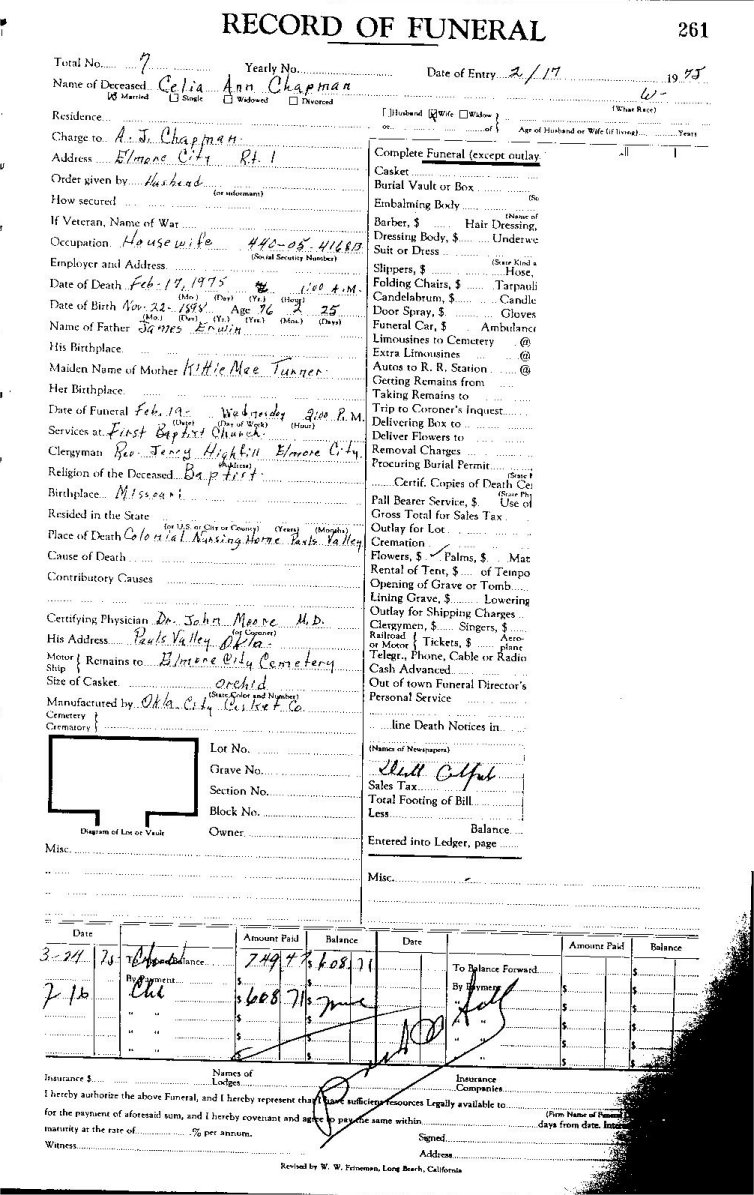 RECORD OF FUNERAL 261
Total No. 7 Yearly No. Date of Entry 2/17 1975
Name of Deceased Celia Ann Chapman W-
☒ Married ☐ Single ☐ Widowed ☐ Divorced (What Race)
Residence ☐ Husband ☒ Wife ☐ Widow }
or of Age of Husband or Wife (if living) Years
Charge to A. J. Chapman
Address Elmore City Rt. 1
Order given by Husband
(or informant)
How secured
If Veteran, Name of War
Occupation Housewife 440-05-4168B
(Social Security Number)
Employer and Address
Date of Death Feb-17, 1975 1:00 A.M.
(Mo.) (Day) (Yr.) (Hour)
Date of Birth Nov-22-1898 Age 76 2 25
(Mo.) (Day) (Yr.) (Yrs.) (Mos.) (Days)
Name of Father James Erwin
His Birthplace
Maiden Name of Mother Kittie Mae Turner
Her Birthplace
Date of Funeral Feb. 19- Wednesday 2:00 P.M.
(Date) (Day of Week) (Hour)
Services at First Baptist Church
Clergyman Rev. Jerry Highfill Elmore City
(Address)
Religion of the Deceased Baptist
Birthplace Missouri
Resided in the State
(or U.S. or City or County) (Years) (Months)
Place of Death Colonial Nursing Home Pauls Valley
Cause of Death
Contributory Causes
Certifying Physician Dr. John Moore M.D.
(or Coroner)
His Address Pauls Valley Okla.
Motor
Ship { Remains to Elmore City Cemetery
Size of Casket orchid
(State Color and Number)
Manufactured by Okla. City Casket Co.
Cemetery
Crematory {
Lot No.
Grave No.
Section No.
Block No.
Diagram of Lot or Vault Owner
Misc.
Complete Funeral (except outlay all
Casket
Burial Vault or Box
(So
Embalming Body
(Name of
Barber, $ Hair Dressing,
Dressing Body, $ Underwe
Suit or Dress
(State Kind a
Slippers, $ Hose,
Folding Chairs, $ Tarpauli
Candelabrum, $ Candle
Door Spray, $ Gloves
Funeral Car, $ Ambulanc
Limousines to Cemetery @
Extra Limousines @
Autos to R. R. Station @
Getting Remains from
Taking Remains to
Trip to Coroner's Inquest
Delivering Box to
Deliver Flowers to
Removal Charges
Procuring Burial Permit
(State I
Certif. Copies of Death Cer
(State Phy
Pall Bearer Service, $ Use of
Gross Total for Sales Tax
Outlay for Lot
Cremation
Flowers, $ ✓ Palms, $ Mat
Rental of Tent, $ of Tempo
Opening of Grave or Tomb
Lining Grave, $ Lowering
Outlay for Shipping Charges
Clergymen, $ Singers, $
Railroad
or Motor { Tickets, $ Aero-
plane
Telegr., Phone, Cable or Radio
Cash Advanced
Out of town Funeral Director's
Personal Service
line Death Notices in
(Names of Newspapers)
Sales Tax
Total Footing of Bill
Less
Balance
Entered into Ledger, page
Misc.
Date Amount Paid Balance Date Amount Paid Balance
3-24 75 To Balance 749 47 $ 608.71 To Balance Forward $
7 16 By Payment $ 608 71 $ By Payment $ $
" " $ $ " " $ $
" " $ $ " " $ $
" " $ $ " " $ $
Insurance $ Names of
Lodges Insurance
Companies
I hereby authorize the above Funeral, and I hereby represent that I have sufficient resources Legally available to
(Firm Name of Funeral
for the payment of aforesaid sum, and I hereby covenant and agree to pay the same within days from date. Inter
maturity at the rate of % per annum. Signed
Witness Address
Revised by W. W. Frineman, Long Beach, California